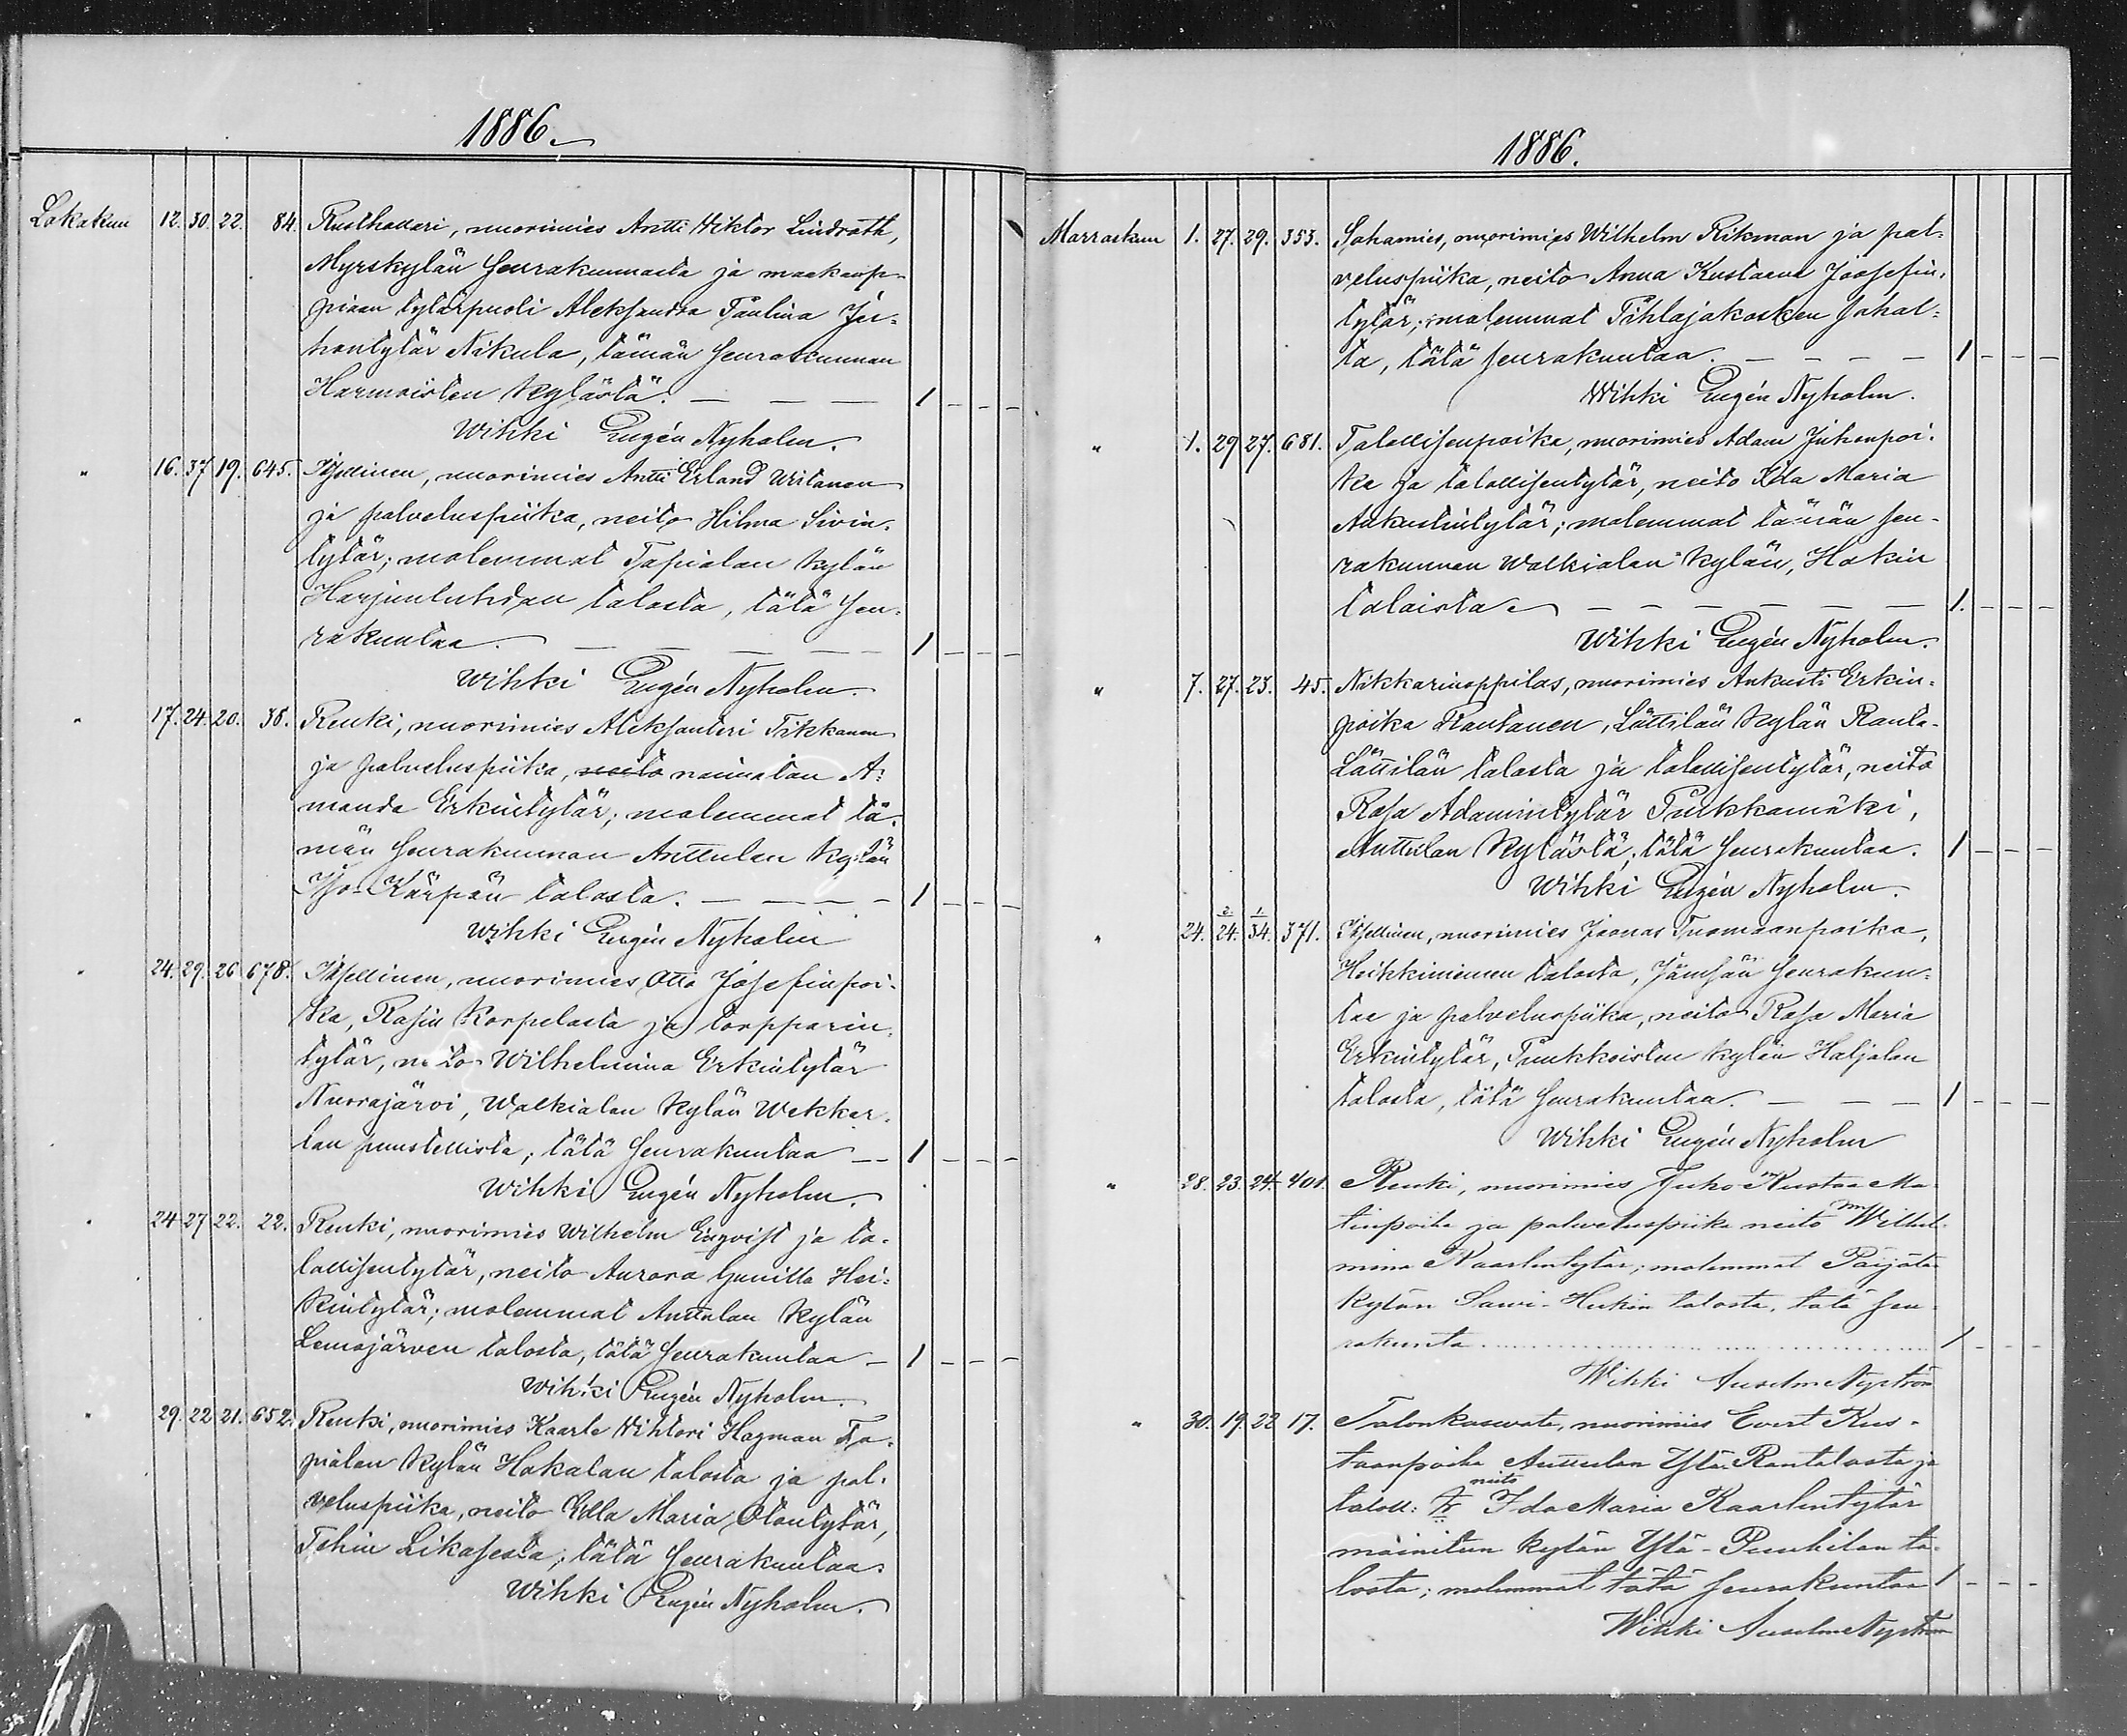 1886.
Lokakuu 12. 30. 22. 84. Rusthollari, nuorimies Antti Wiktor Lindroth,
Myrskylän seurakunnasta ja maakaup-
piaan tytärpuoli Aleksandra Paulina Ju-
hontytär Nikula, tämän seurakunnan
Harmoisten kylästä. — — — 1 - - -
Wihki Eugén Nyholm.
" 16. 37. 19. 645. Itsellinen, nuorimies Antti Erland Writanen
ja palveluspiika, neito Hilma Sivin-
tytär; molemmat Tapialan kylän
Harjunluhdan talosta, tätä seu-
rakuntaa. — — — — 1 - - -
Wihki Eugén Nyholm.
" 17. 24. 20. 38. Renki, nuorimies Aleksanteri Tikkanen
ja palveluspiika, neito naimaton A-
manda Erkintytär; molemmat tä-
män seurakunnan Anttulan kylän
Iso-Kärpän talosta. — — — 1 - - -
Wihki Eugén Nyholm
" 24. 29. 26 678. Itsellinen, nuorimies Otto Josefinpoi-
ka, Rasin Korpelasta ja torpparin-
tytär, neito Wilhelmiina Erkintytär
Nuorajärvi, Walkialan kylän Wekker-
lan puustellista, tätä seurakuntaa — 1 - - -
Wihki Eugén Nyholm.
" 24 27 22. 22. Renki, nuorimies Wilhelm Enqvist ja ta-
lollisentytär, neito Aurora Gunilla Hei-
kintytär; molemmat Anttulan kylän
Lemojärven talosta, tätä seurakuntaa — 1 - - -
Wihki Eugén Nyholm.
" 29. 22 21. 652. Renki, nuorimies Kaarle Wihtori Hagman Ta-
pialan kylän Hakalan talosta ja pal-
veluspiika, neito Edla Maria Otontytär,
Tehin Likasesta; tätä seurakuntaa.
Wihki Eugén Nyholm.
1886.
Marraskuu 1. 27. 29. 353. Sahamies, nuorimies Wilhelm Rikman ja pal-
veluspiika, neito Anna Kustaava Joosefin-
tytär; molemmat Pihlajakosken sahal-
ta, tätä seurakuntaa. — — — — 1 - - -
Wihki Eugén Nyholm.
" 1. 29 27. 681. Talollisenpoika, nuorimies Adam Juhonpoi-
ka ja talollisentytär, neito Ida Maria
Aukustintytär; molemmat tämän seu-
rakunnan Walkialan kylän, Hakin
taloista — — — — — — 1. - - -
Wihki Eugén Nyholm.
" 7. 27. 23. 45. Nikkarinoppilas, nuorimies Aukusti Erkin-
poika Rautanen, Lättilän kylän Ranta-
Lättilän talosta ja talollisentytär, neito
Rosa Adamintytär Purkkamäki,
Anttulan kylästä; tätä seurakuntaa. 1 - - -
Wihki Eugén Nyholm.
" 24. 2. 24. 1. 34. 371. Itsellinen, nuorimies Joonas Tuomaanpoika,
Heikkiniemen talosta, Jämsän seurakun-
taa ja palveluspiika, neito Rosa Maria
Erkintytär, Puukkoisten kylän Haljalan
talosta, tätä seurakuntaa. — — — 1 - - -
Wihki Eugén Nyholm
" 28. 23. 24. 401. Renki, nuorimies Juho Kustaa Ma-
tinpoika ja palveluspiika neito Wilhel-
mina Kaarlentytär; molemmat Päijälä
kylän Sawi-Hukin talosta, tätä seu-
rakunta 1 - - -
Wihki Anselm Nyström
" 30. 19. 22 17. Talonkasvate, nuorimies Evert Kus-
taanpoika Anttulan Ylä-Rantalasta ja
neito
taloll: tr Ida Maria Kaarlentytär
mainitun kylän Ylä-Puukilan ta-
losta; molemmat tätä seurakuntaa 1 - - -
Wihki Anselm Nyström